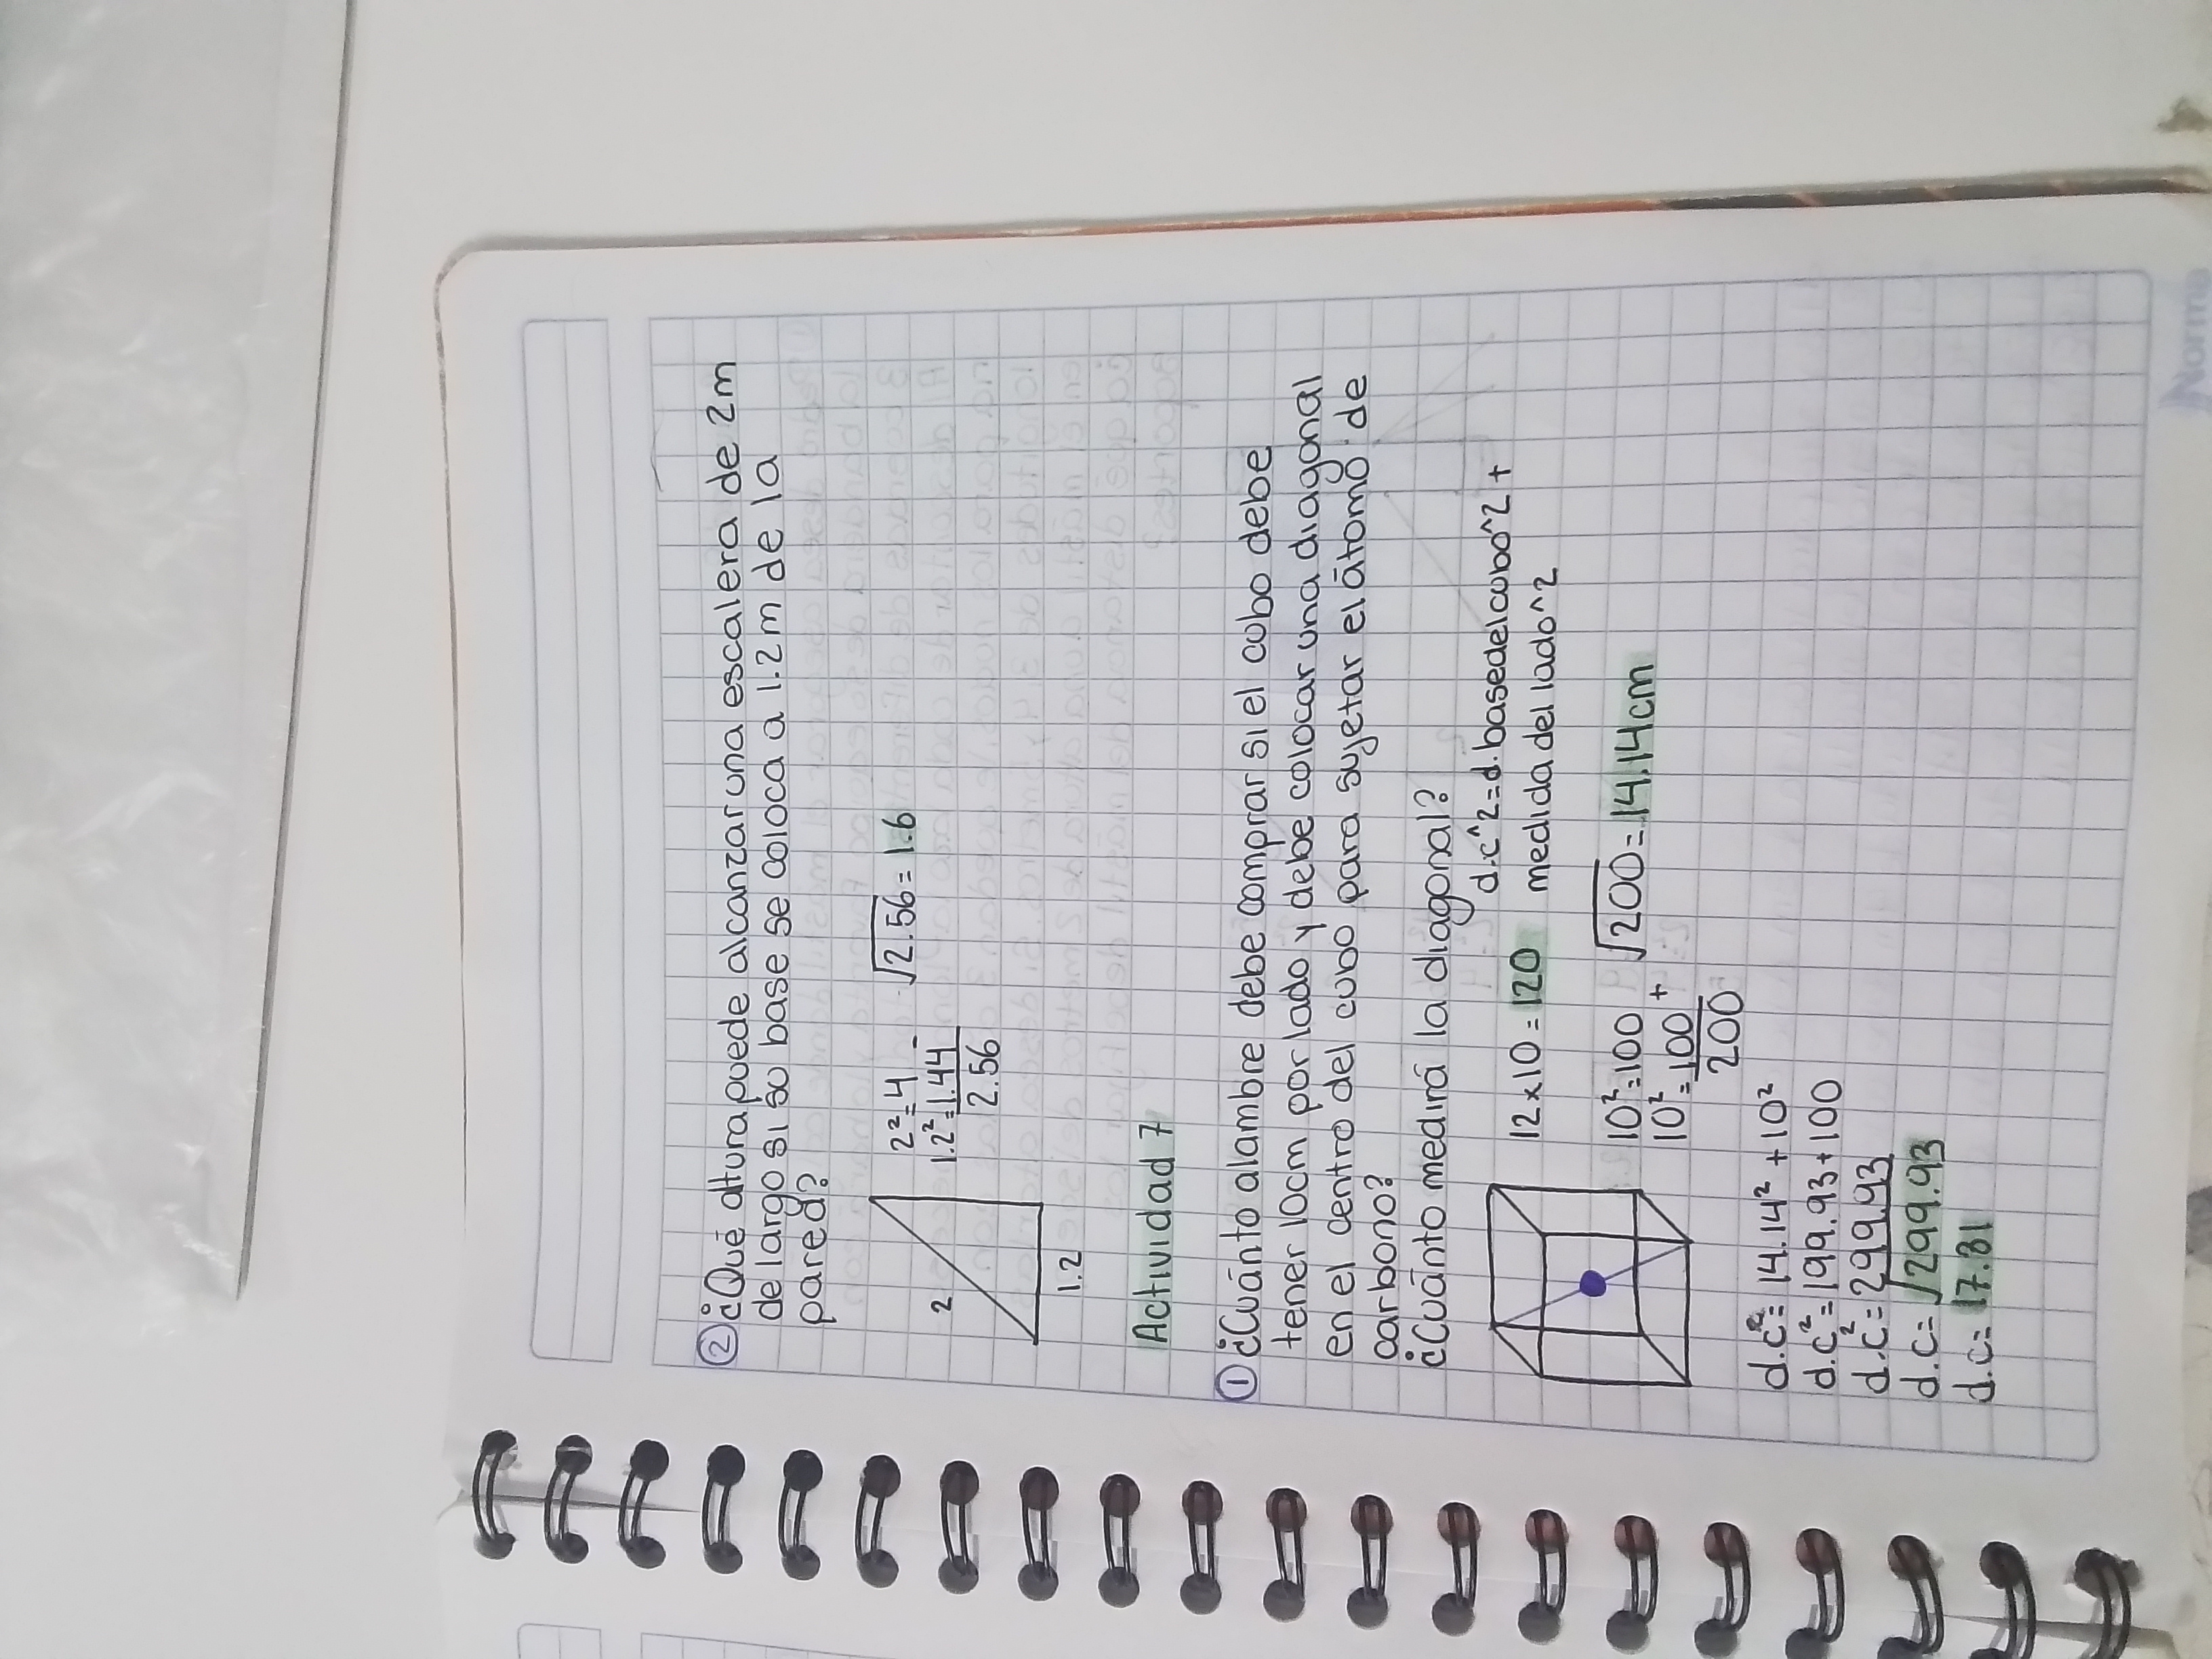 ② ¿Qué altura puede alcanzar una escalera de 2m
de largo si su base se coloca a 1.2m de la
pared?
2
1.2
2²=4
1.2²=1.44 -
2.56
√2.56 = 1.6
Actividad 7
① ¿Cuánto alambre debe comprar si el cubo debe
tener 10cm por lado y debe colocar una diagonal
en el centro del cubo para sujetar el átomo de
carbono?
¿Cuánto medirá la diagonal?
12×10=120
d.c^2=d.basedelcubo^2+
medida del lado^2
10²=100
10²=100 +
200
√200=14.14cm
d.c²=14.14²+10²
d.c²=199.93+100
d.c²=299.93
d.c=√299.93
d.c=17.31
Norma